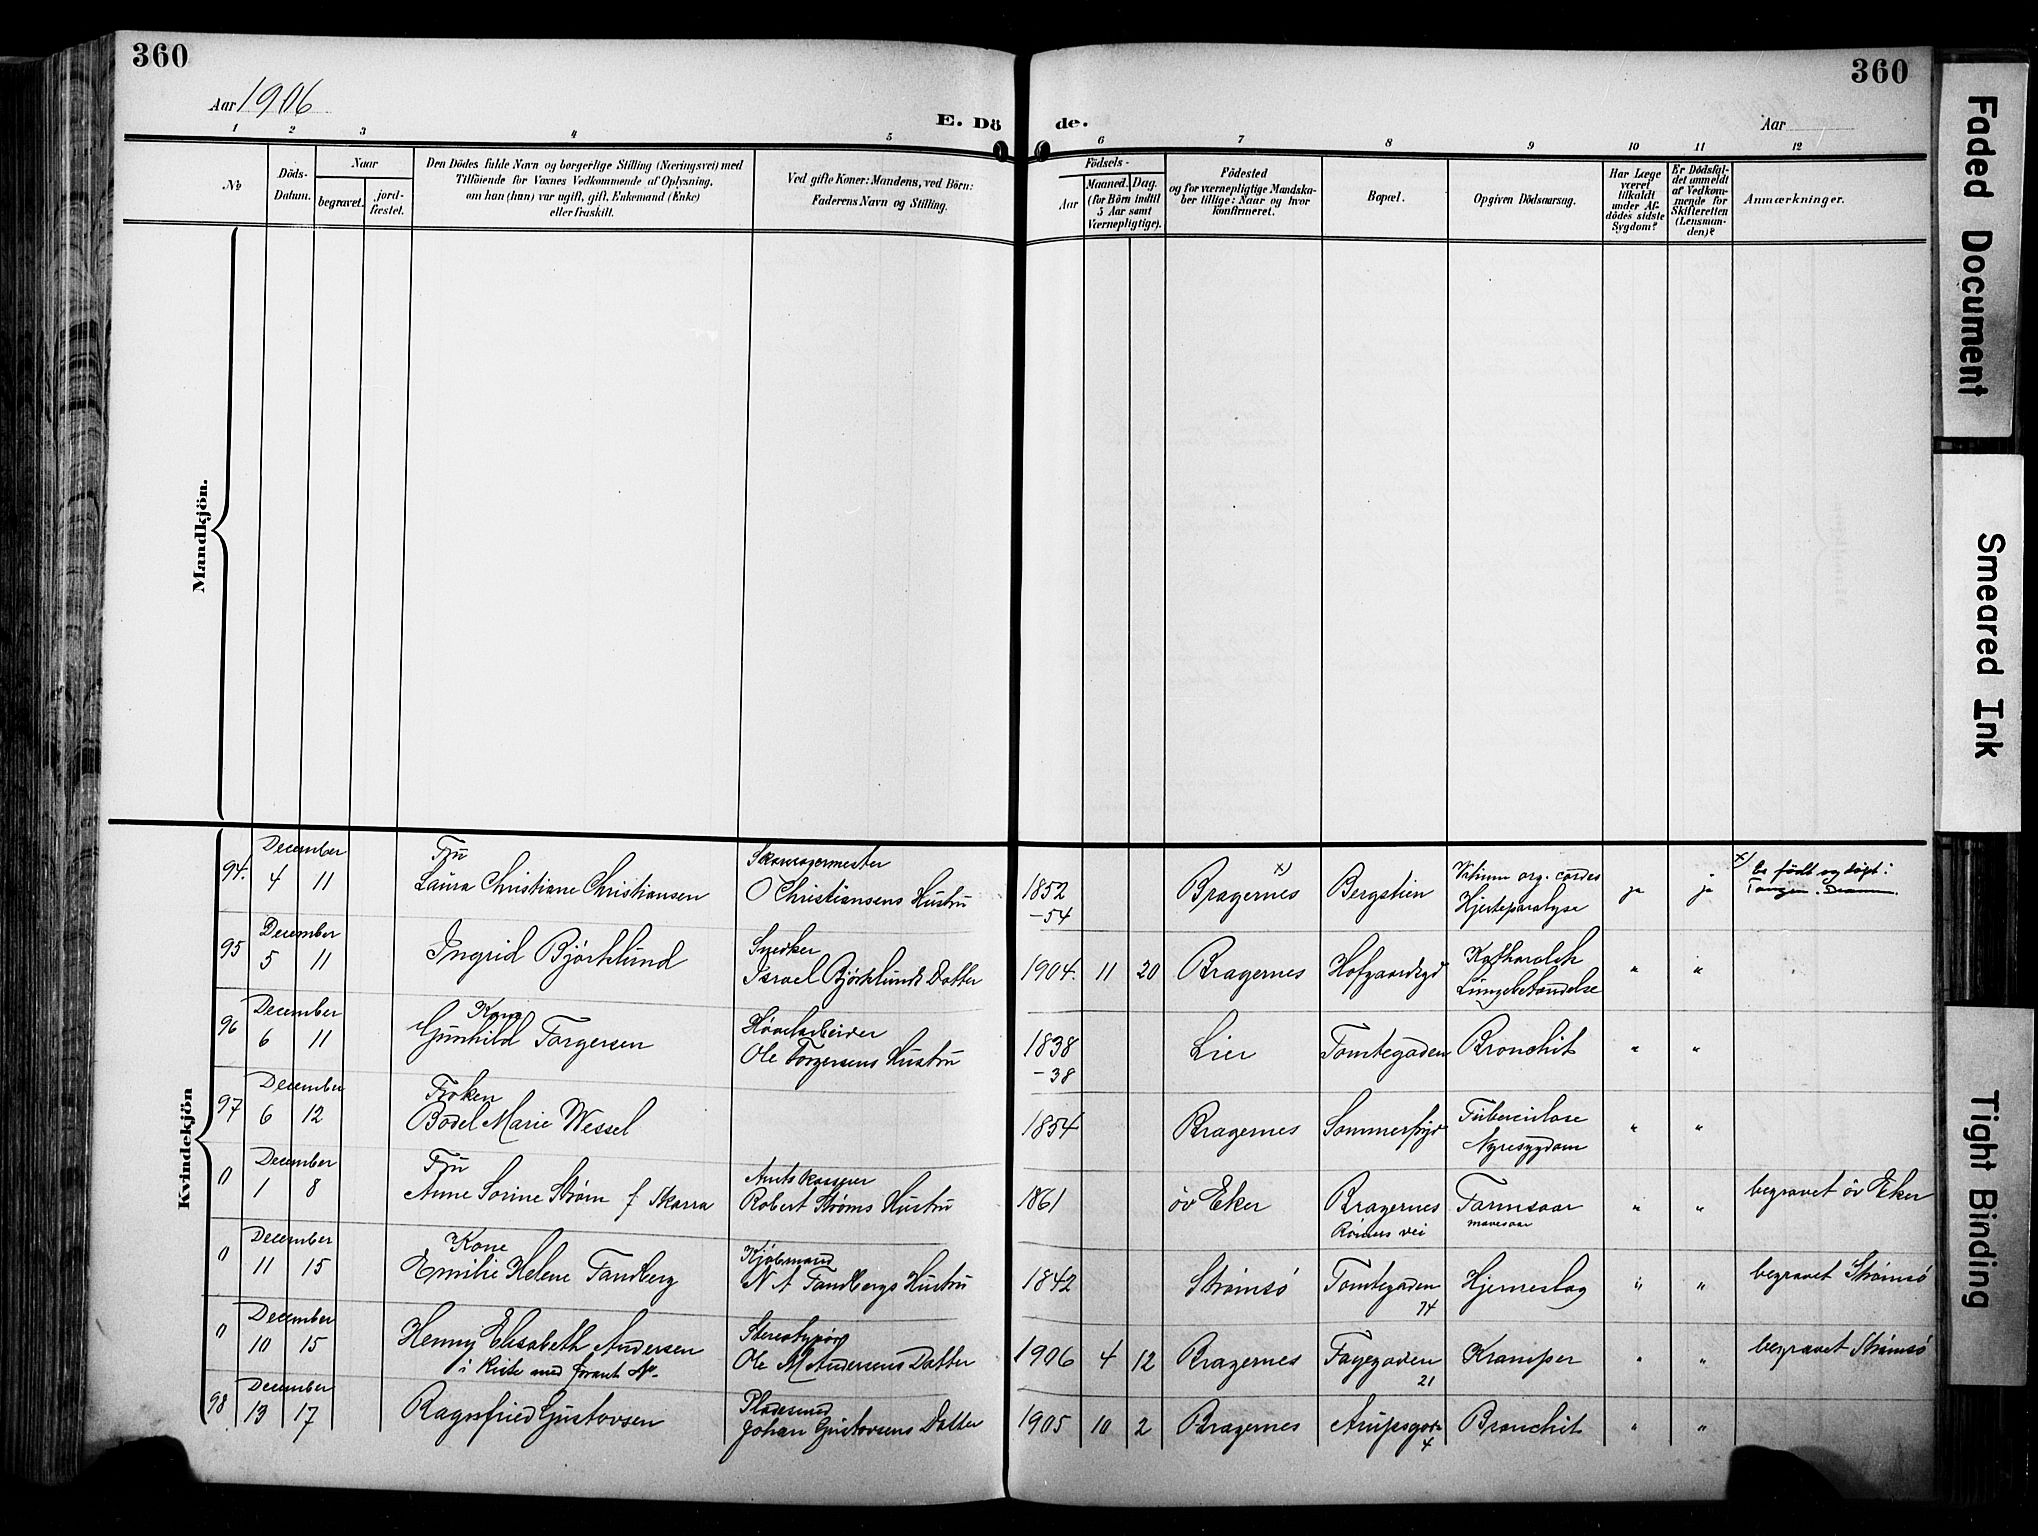 360
360
Aar 1906
E. Dö
de.
Aar
1 2 3 4 5 6 7 8 9 10 11 12
№
Döds-
Datum.
Naar
begravet.
jord-
fæstet.
Den Dödes fulde Navn og borgerlige Stilling (Næringsvei) med
Tilföiende for Voxnes Vedkommende af Oplysning.
om han (hun) var ugift, gift, Enkemand (Enke)
eller fraskilt.
Ved gifte Koner: Mandens, ved Börn:
Faderens Navn og Stilling.
Födsels-
Aar
Maaned. Dag.
(for Börn indtil
5 Aar samt
Værnepligtige).
Födested
og for værnepligtige Mandska-
ber tillige: Naar og hvor
konfirmeret.
Bopæl.
Opgiven Dödsaarsag.
Har Læge
været
tilkaldt
under Af-
dödes sidste
Sygdom?
Er Dödsfal-
det anmeldt
af Vedkom-
mende for
Skifteretten
(Lensman-
den)?
Anmærkninger.
Mandkjön.
Kvindekjön
94. December 4 11 Fru Laura Christiane Christiansen
O Christiansens Hustru 1852 -54 Bragernes x) Bergstien Vitium org. cordis Hjerteparalyse ja ja x) Er født og døpt: Tangen. Dramm.
95 December 5 11 Ingrid Bjørklund Snedker Israel Bjørklunds Datter 1904. 11 20 Bragernes Hofgaardsgd Katharalsk Lungebetændelse " "
96 December 6 11 Kone Gunhild Torgersen Høvelarbeider Ole Torgersens Hustru 1838 -38 Lier Tomtegaden Bronchit " "
97 December 6 12 Frøken Bodel Marie Wessel 1854 Bragernes Sommerfryd Tuberculose Nyresygdom " "
0 December 1 8 Fru Anne Sorine Strøm f. Skarra Amtskasserer Robert Strøms Hustru 1861 öv Eker Bragernes vei Tarmsaar mavesaar " " begravet öv Eker
0 December 11 15 Kone Emilie Helene Tandberg Kjøbmand N A Tandbergs Hustru 1842 Strømsö Tomtegaden 74 Hjerneslag " " begravet Strømsö
0 December 10 15 Henny Elisabeth Andersen i Kiste med forant № Stereotypör Ole M Andersens Datter 1906 4 12 Bragernes Fayegaden 21 Kramper " " begravet Strømsö
98 December 13 17 Ragnfried Gustavsen Pladesmed Johan Gustavsens Datter 1905 10 2 Bragernes Arupsgad 4 Bronchit " "
Faded Document
Smeared Ink
Tight Binding